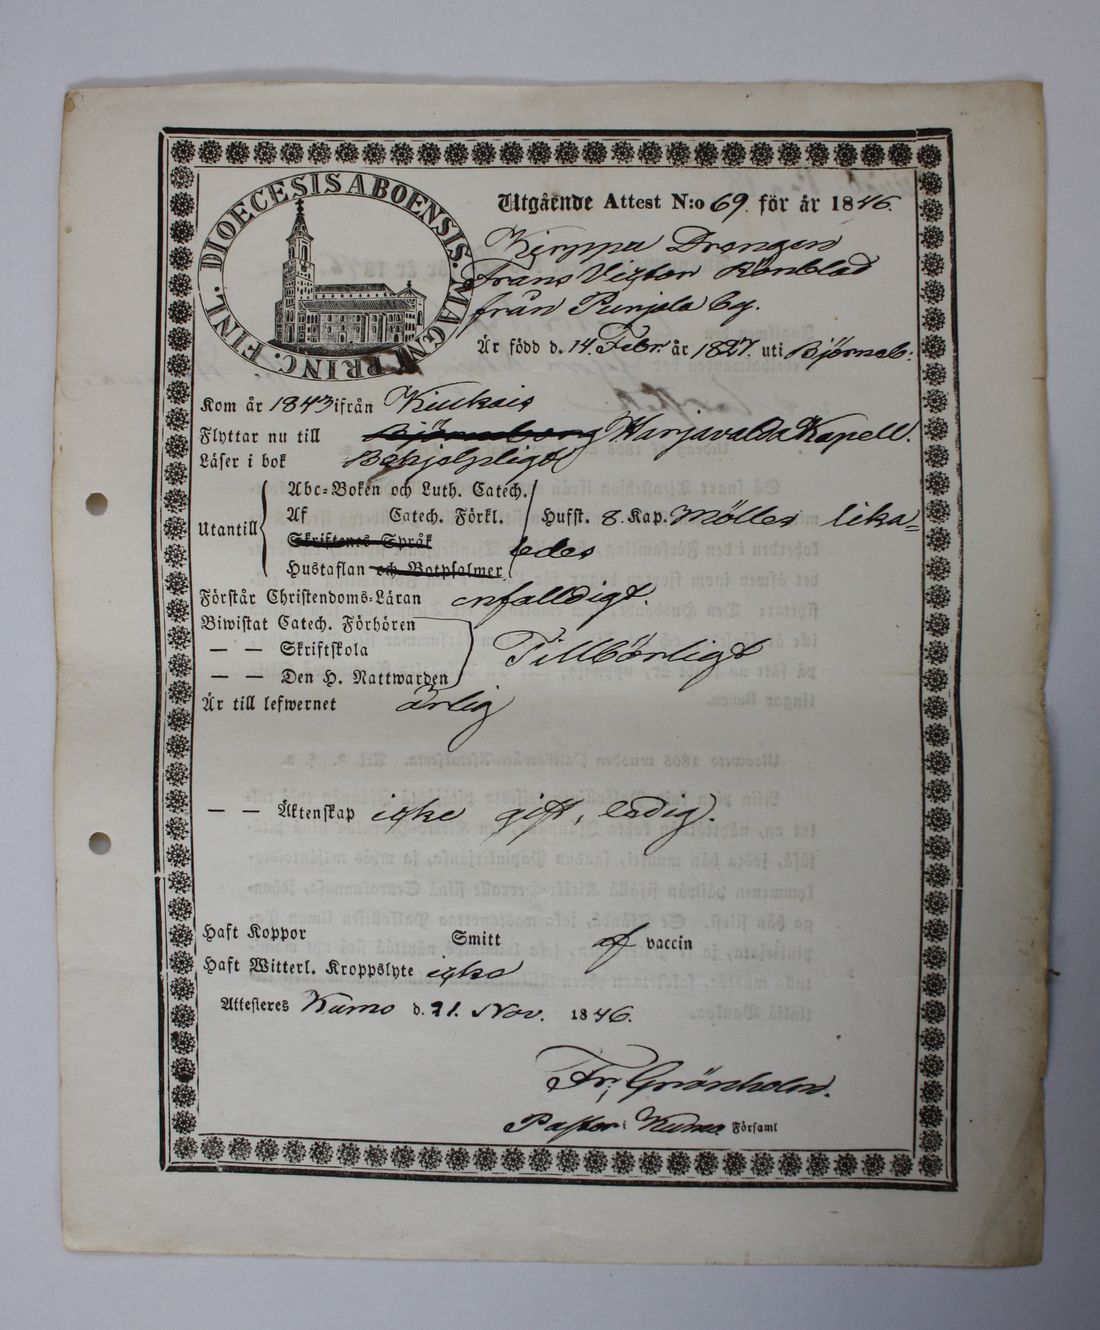 DIOECESIS ABOENSIS. MAGNI PRINC. FINL.
Utgående Attest N:o 69. för år 1846.
Drengen
Frans Victor Rönblad
från Punjala by.
Är född d. 14 Febr. år 1827. uti Björneb:
Kom år 1843 ifrån Kiukais
Flyttar nu till Björneborg Harjavalda Kapell.
Läser i bok
Abc=Boken och Luth. Catech.
Utantill Af Catech. Förkl. Hufst. 8. Kap. lika=
Skriftenes Språk ledes
Hustaflan och Botpsalmer
Förstår Christendoms=Läran enfalldigt.
Biwistat Catech. Förhören
— — Skriftskola Tillbörligt
— — Den H. Nattwarden
Är till lefwernet ärlig
— — Äktenskap icke gift, ledig.
Haft Koppor Smitt af vaccin
Haft Witterl. Kroppslyte icke
Attesteres Kumo d. 21. Nov. 1846.
Fr: Grönholm.
Pastor i Kumo Församl